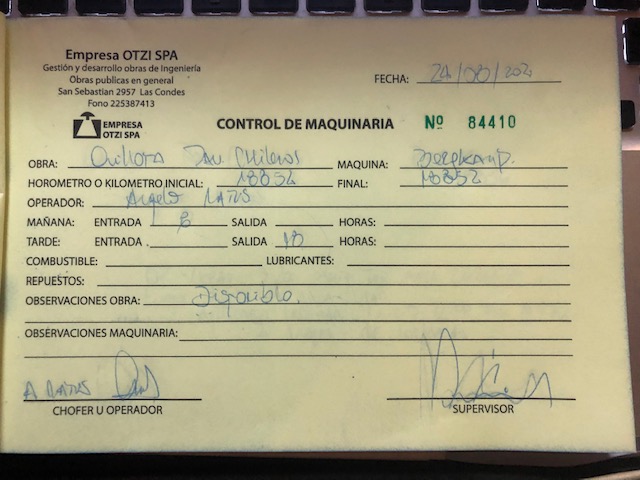 Empresa OTZI SPA
Gestión y desarrollo obras de Ingeniería
Obras publicas en general
San Sebastian 2957 Las Condes
Fono 225387413
FECHA:
EMPRESA
OTZI SPA
CONTROL DE MAQUINARIA Nº 84410
OBRA: Quillota MAQUINA:
HOROMETRO O KILOMETRO INICIAL: 10852 FINAL: 10852
OPERADOR:
MAÑANA: ENTRADA 8 SALIDA HORAS:
TARDE: ENTRADA SALIDA 18 HORAS:
COMBUSTIBLE: LUBRICANTES:
REPUESTOS:
OBSERVACIONES OBRA: Disponible.
OBSERVACIONES MAQUINARIA:
CHOFER U OPERADOR SUPERVISOR